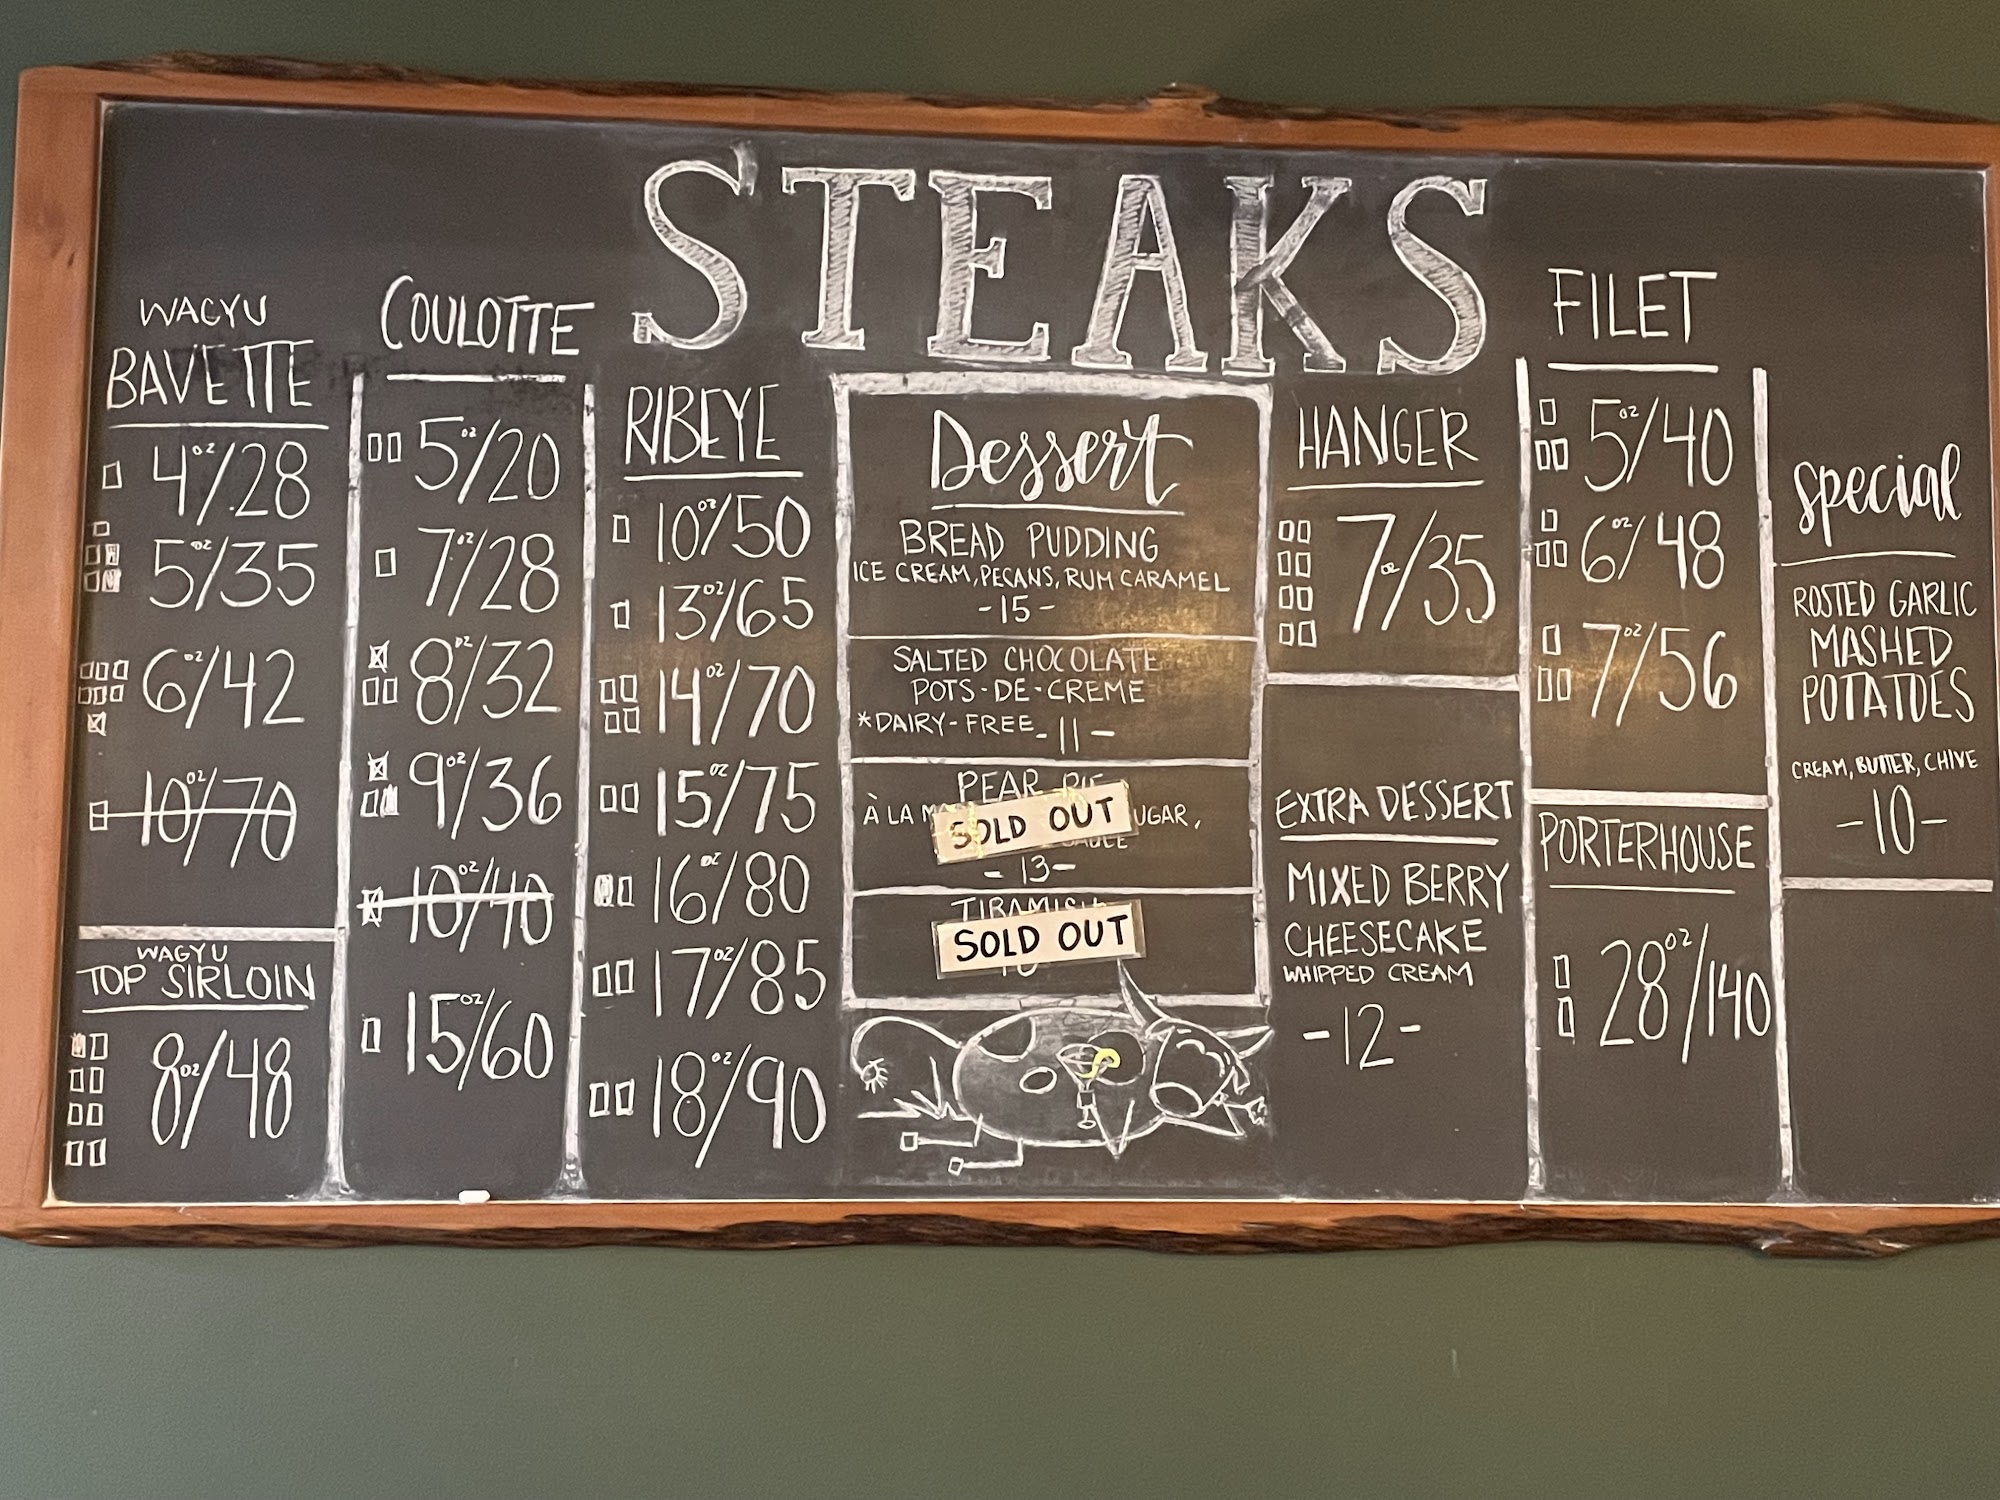 STEAKS
WAGYU
BAVETTE
4oz/28
5oz/35
6oz/42
10oz/70
WAGYU
TOP SIRLOIN
8oz/48
COULOTTE
5oz/20
7oz/28
8oz/32
9oz/36
10oz/40
15oz/60
RIBEYE
10oz/50
13oz/65
14oz/70
15oz/75
16oz/80
17oz/85
18oz/90
Dessert
BREAD PUDDING
ICE CREAM, PECANS, RUM CARAMEL
-15-
SALTED CHOCOLATE
POTS-DE-CREME
*DAIRY-FREE -11-
PEAR PIE
À LA UGAR,
SOLD OUT
SAUCE
-13-
TIRAMISU
SOLD OUT
HANGER
7oz/35
EXTRA DESSERT
MIXED BERRY
CHEESECAKE
WHIPPED CREAM
-12-
FILET
5oz/40
6oz/48
7oz/56
PORTERHOUSE
28oz/140
special
ROSTED GARLIC
MASHED
POTATOES
CREAM, BUTTER, CHIVE
-10-